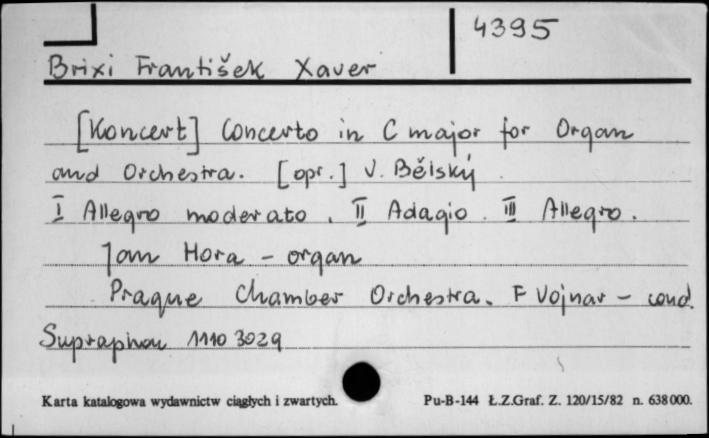 4395
Brixi František Xaver
[Koncert] Concerto in C major for Organ
and Orchestra. [opr.] V. Bělský
I Allegro moderato. II Adagio. III Allegro.
Jan Hora - organ
Prague Chamber Orchestra. F Vojnar - cond.
Supraphon 1110 3029
Karta katalogowa wydawnictw ciągłych i zwartych.
Pu-B-144 Ł.Z.Graf. Z. 120/15/82 n. 638000.